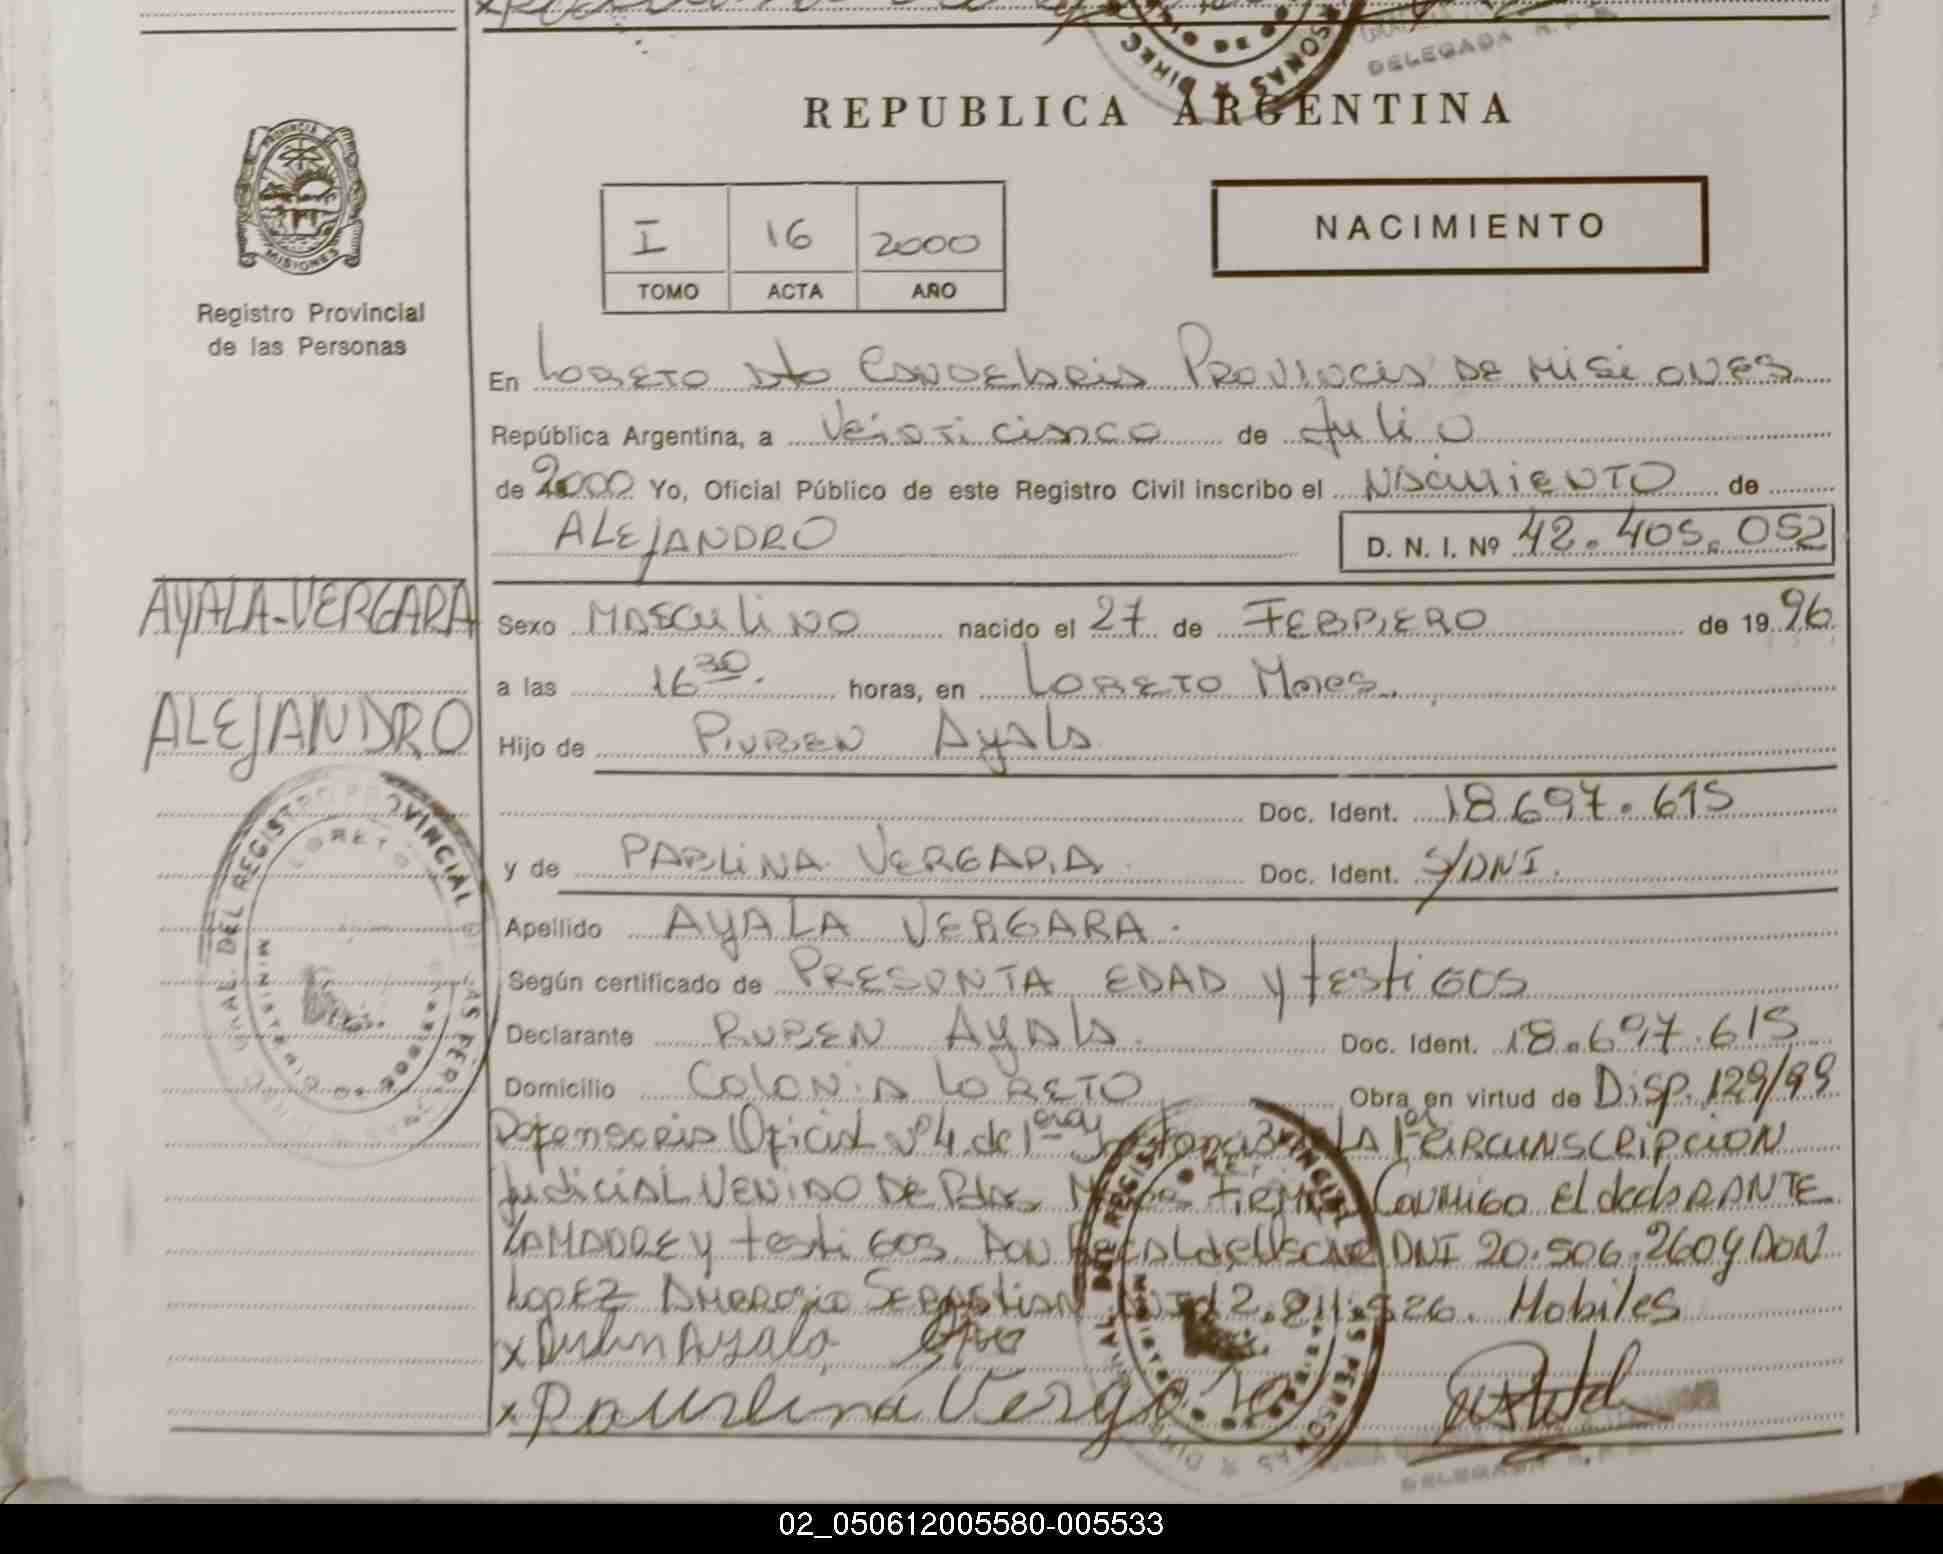 DELEGADA R.P.P.
REPUBLICA ARGENTINA
PROVINCIA
MISIONES
Registro Provincial
de las Personas
I 16 2000
TOMO ACTA AÑO
NACIMIENTO
En LORETO Dto CANDELARIA PROVINCIA DE MISIONES
República Argentina, a Veinticinco de Julio
de 2000 Yo, Oficial Público de este Registro Civil inscribo el NACIMIENTO de
ALEJANDRO D. N. I. Nº 42.405.052
AYALA-VERGARA
ALEJANDRO
Sexo MASCULINO nacido el 27 de FEBRERO de 1996
a las 16 30. horas, en LORETO Mnes.
Hijo de RUBEN Ayala
Doc. Ident. 18.697.615
y de PABLINA VERGARA Doc. Ident. S/DNI.
Apellido AYALA VERGARA.
Según certificado de PRESUNTA EDAD y testigos
Declarante RUBEN Ayala. Doc. Ident. 18.697.615
Domicilio COLONIA LORETO Obra en virtud de Disp. 129/99
Defensoria Oficial Nº 4 de 1era Instancia LA 1era CIRCUNSCRIPCION
Judicial VENIDO DE Pdas. FIRMA CONMIGO El declaRANTE
LA MADRE y testigos DON DNI 20.506.260 y DON
LOPEZ AMBROSIO SEBASTIAN Mobiles
x Rubén Ayala
x Paurlina Vergara
REGISTRO PROVINCIAL
LORETO
02_050612005580-005533